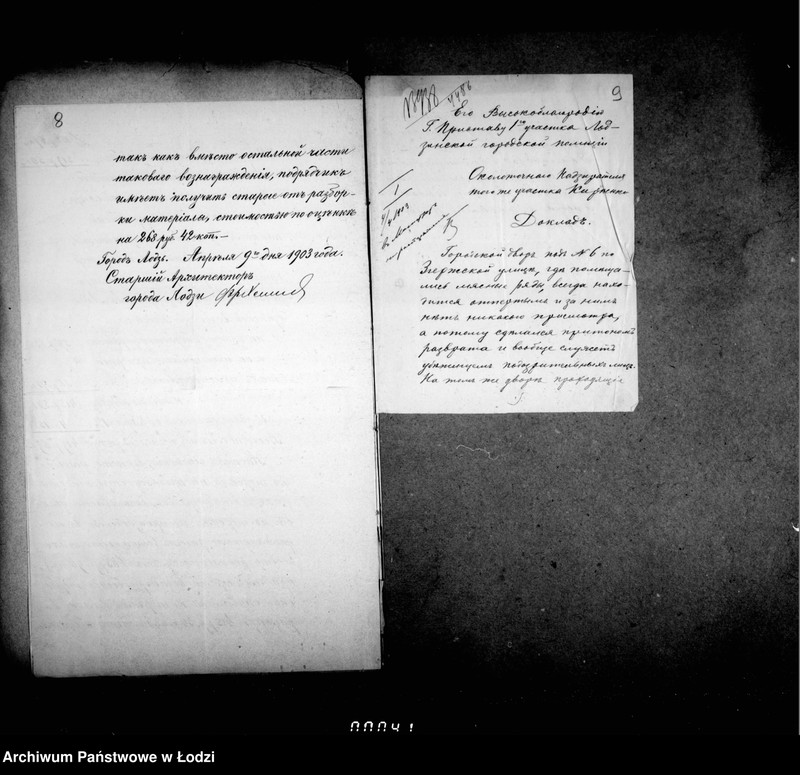 8
такъ какъ вмѣсто остальной части
таковаго вознагражденія, подрядчикъ
имѣетъ получить старые отъ разбор-
ки матеріалы, стоимостью по оцѣнкѣ
на 268 руб. 42 коп.—
Городъ Лодзь. Апрѣля 9го дня 1903 года.
Старшій Архитекторъ
города Лодзи
9
4486
Его Высокоблагородій
Г. Приставу 1го участка Лод-
зинской городской полиціи
Околоточнаго Надзирателя
того же участка
Докладъ.
Городской дворъ подъ № 6 по
Згержской улицѣ, гдѣ помѣща-
лись мясные ряды, всегда нахо-
дится отпертымъ и за нимъ
нѣтъ никакого присмотра,
а потому сдѣлался притономъ
разврата и вообще служитъ
убѣжищемъ подозрительныхъ лицъ.
На томъ же дворѣ проходящіе
00041
Archiwum Państwowe w Łodzi